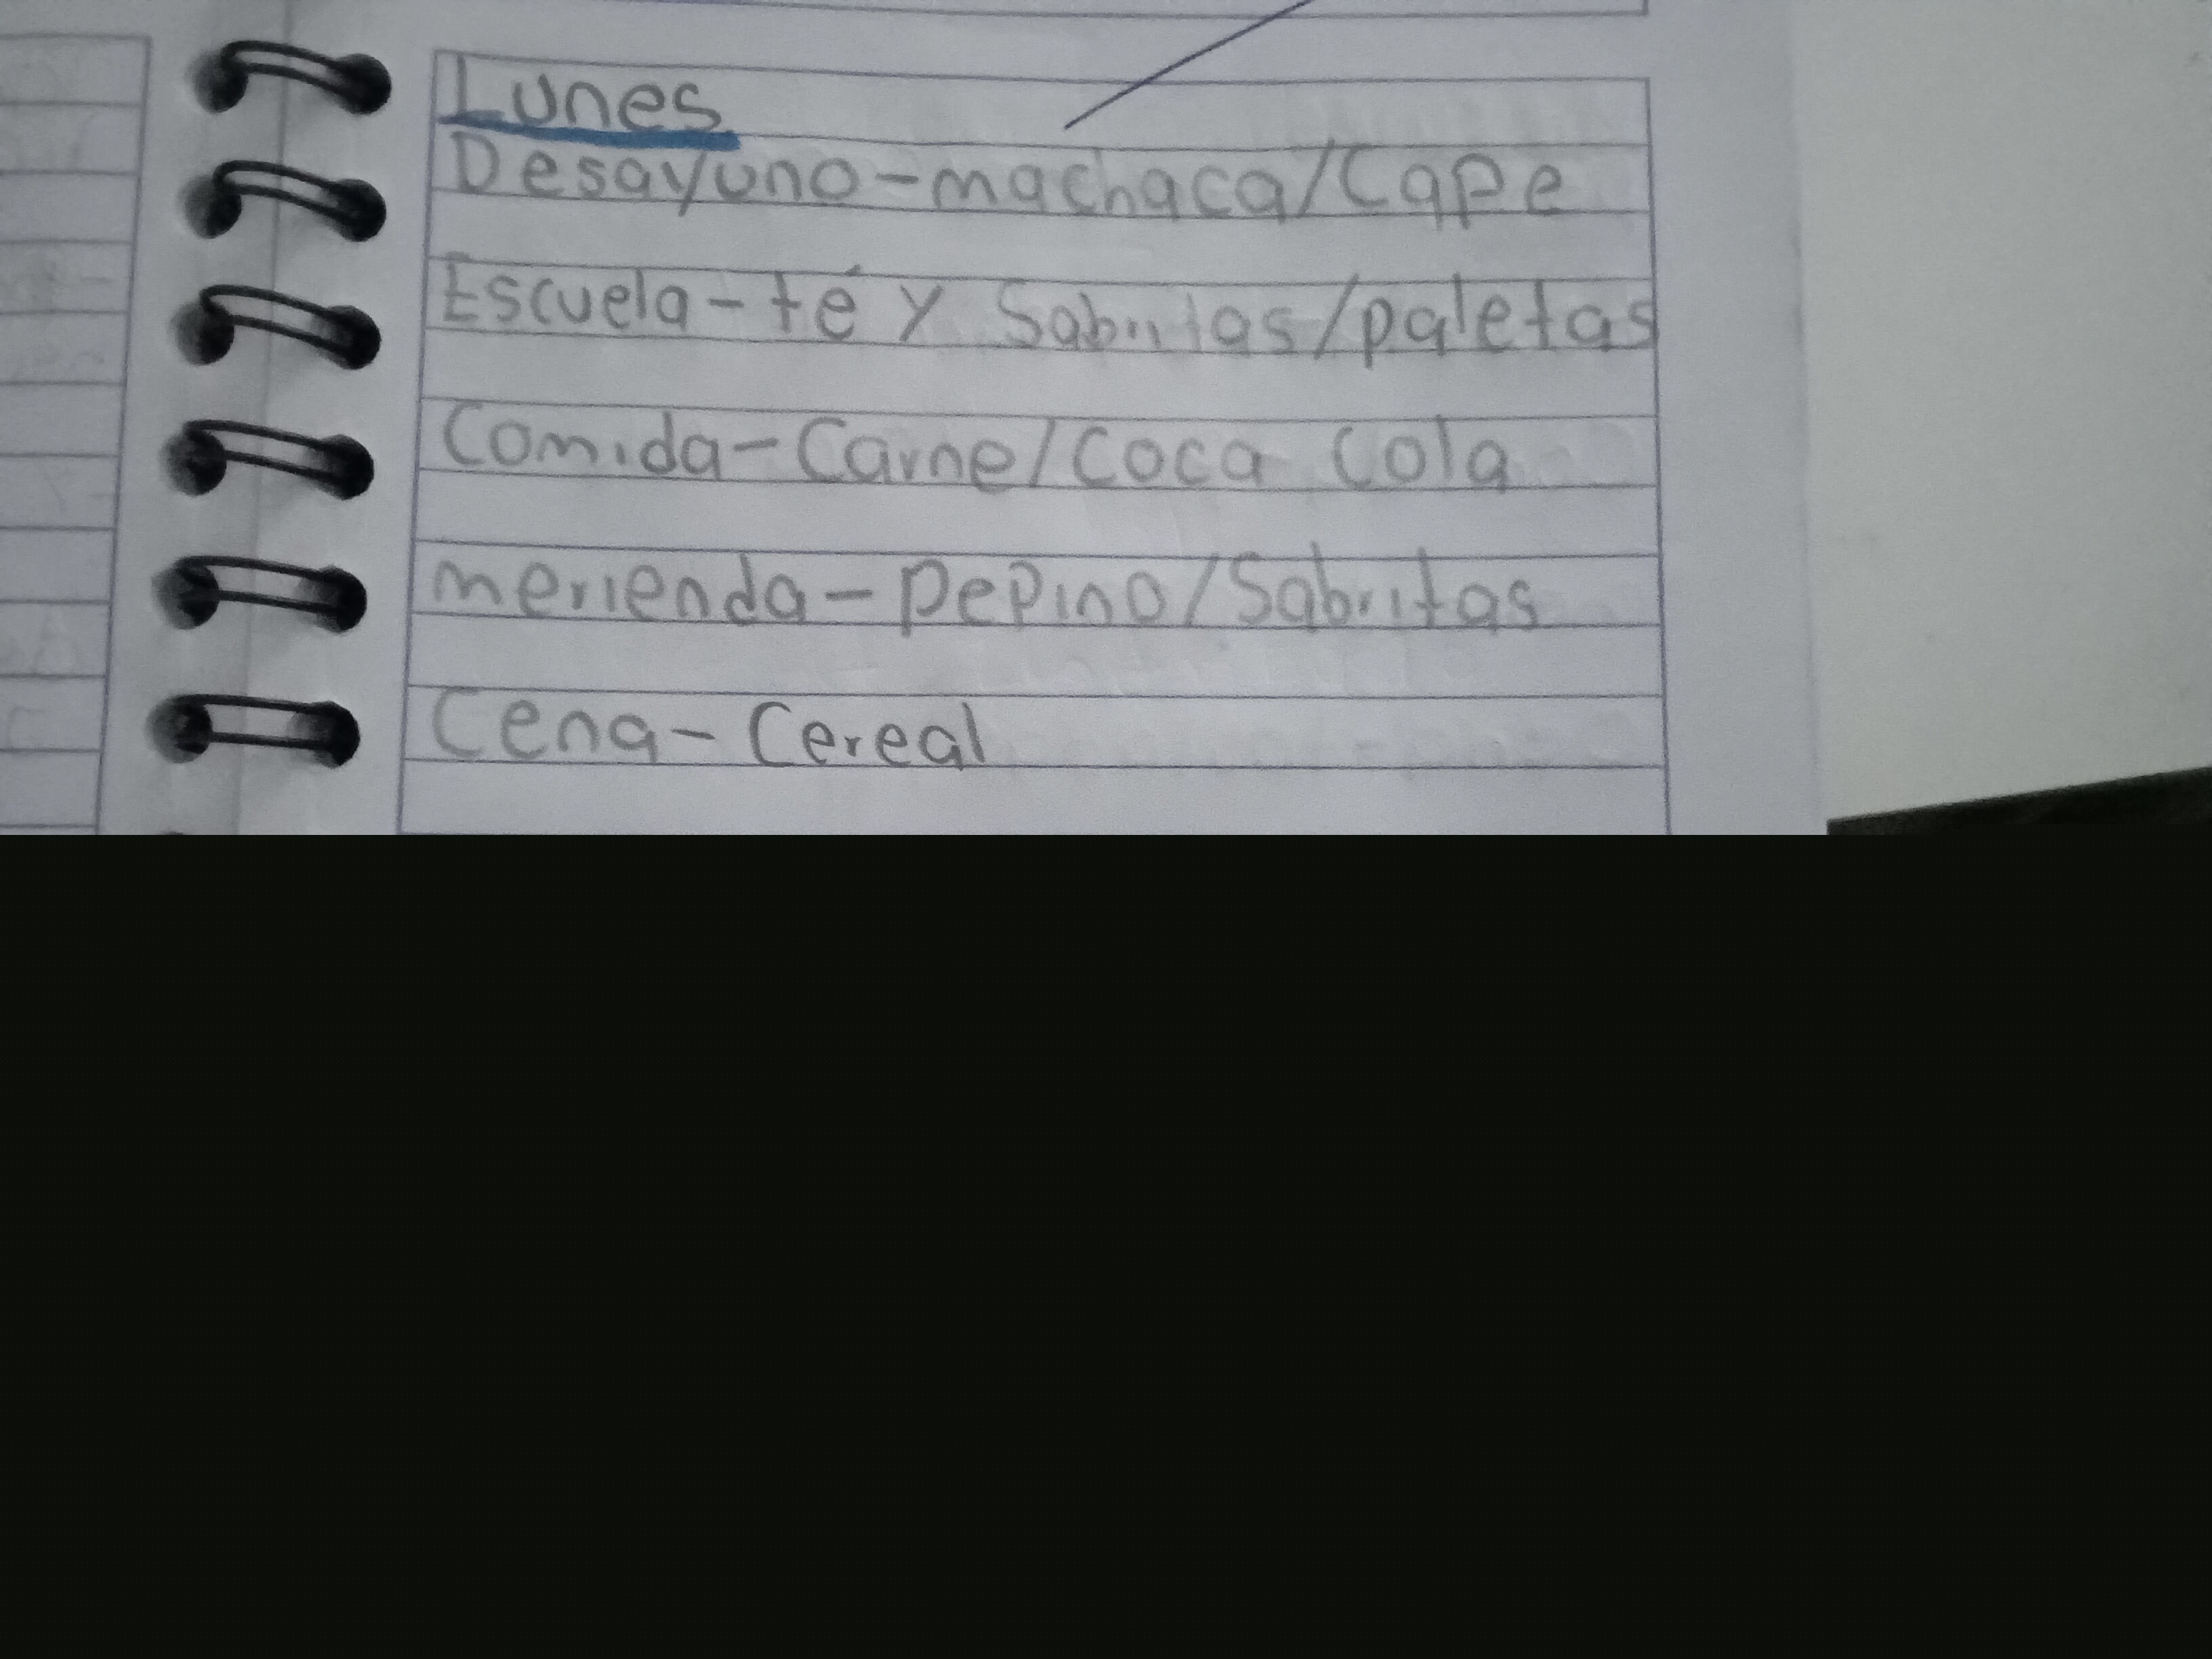 Lunes
Desayuno-machaca/Cape
Escuela-té y Sabritas/paletas
Comida-Carne/Coca Cola
merienda-pepino/Sabritas
Cena-Cereal